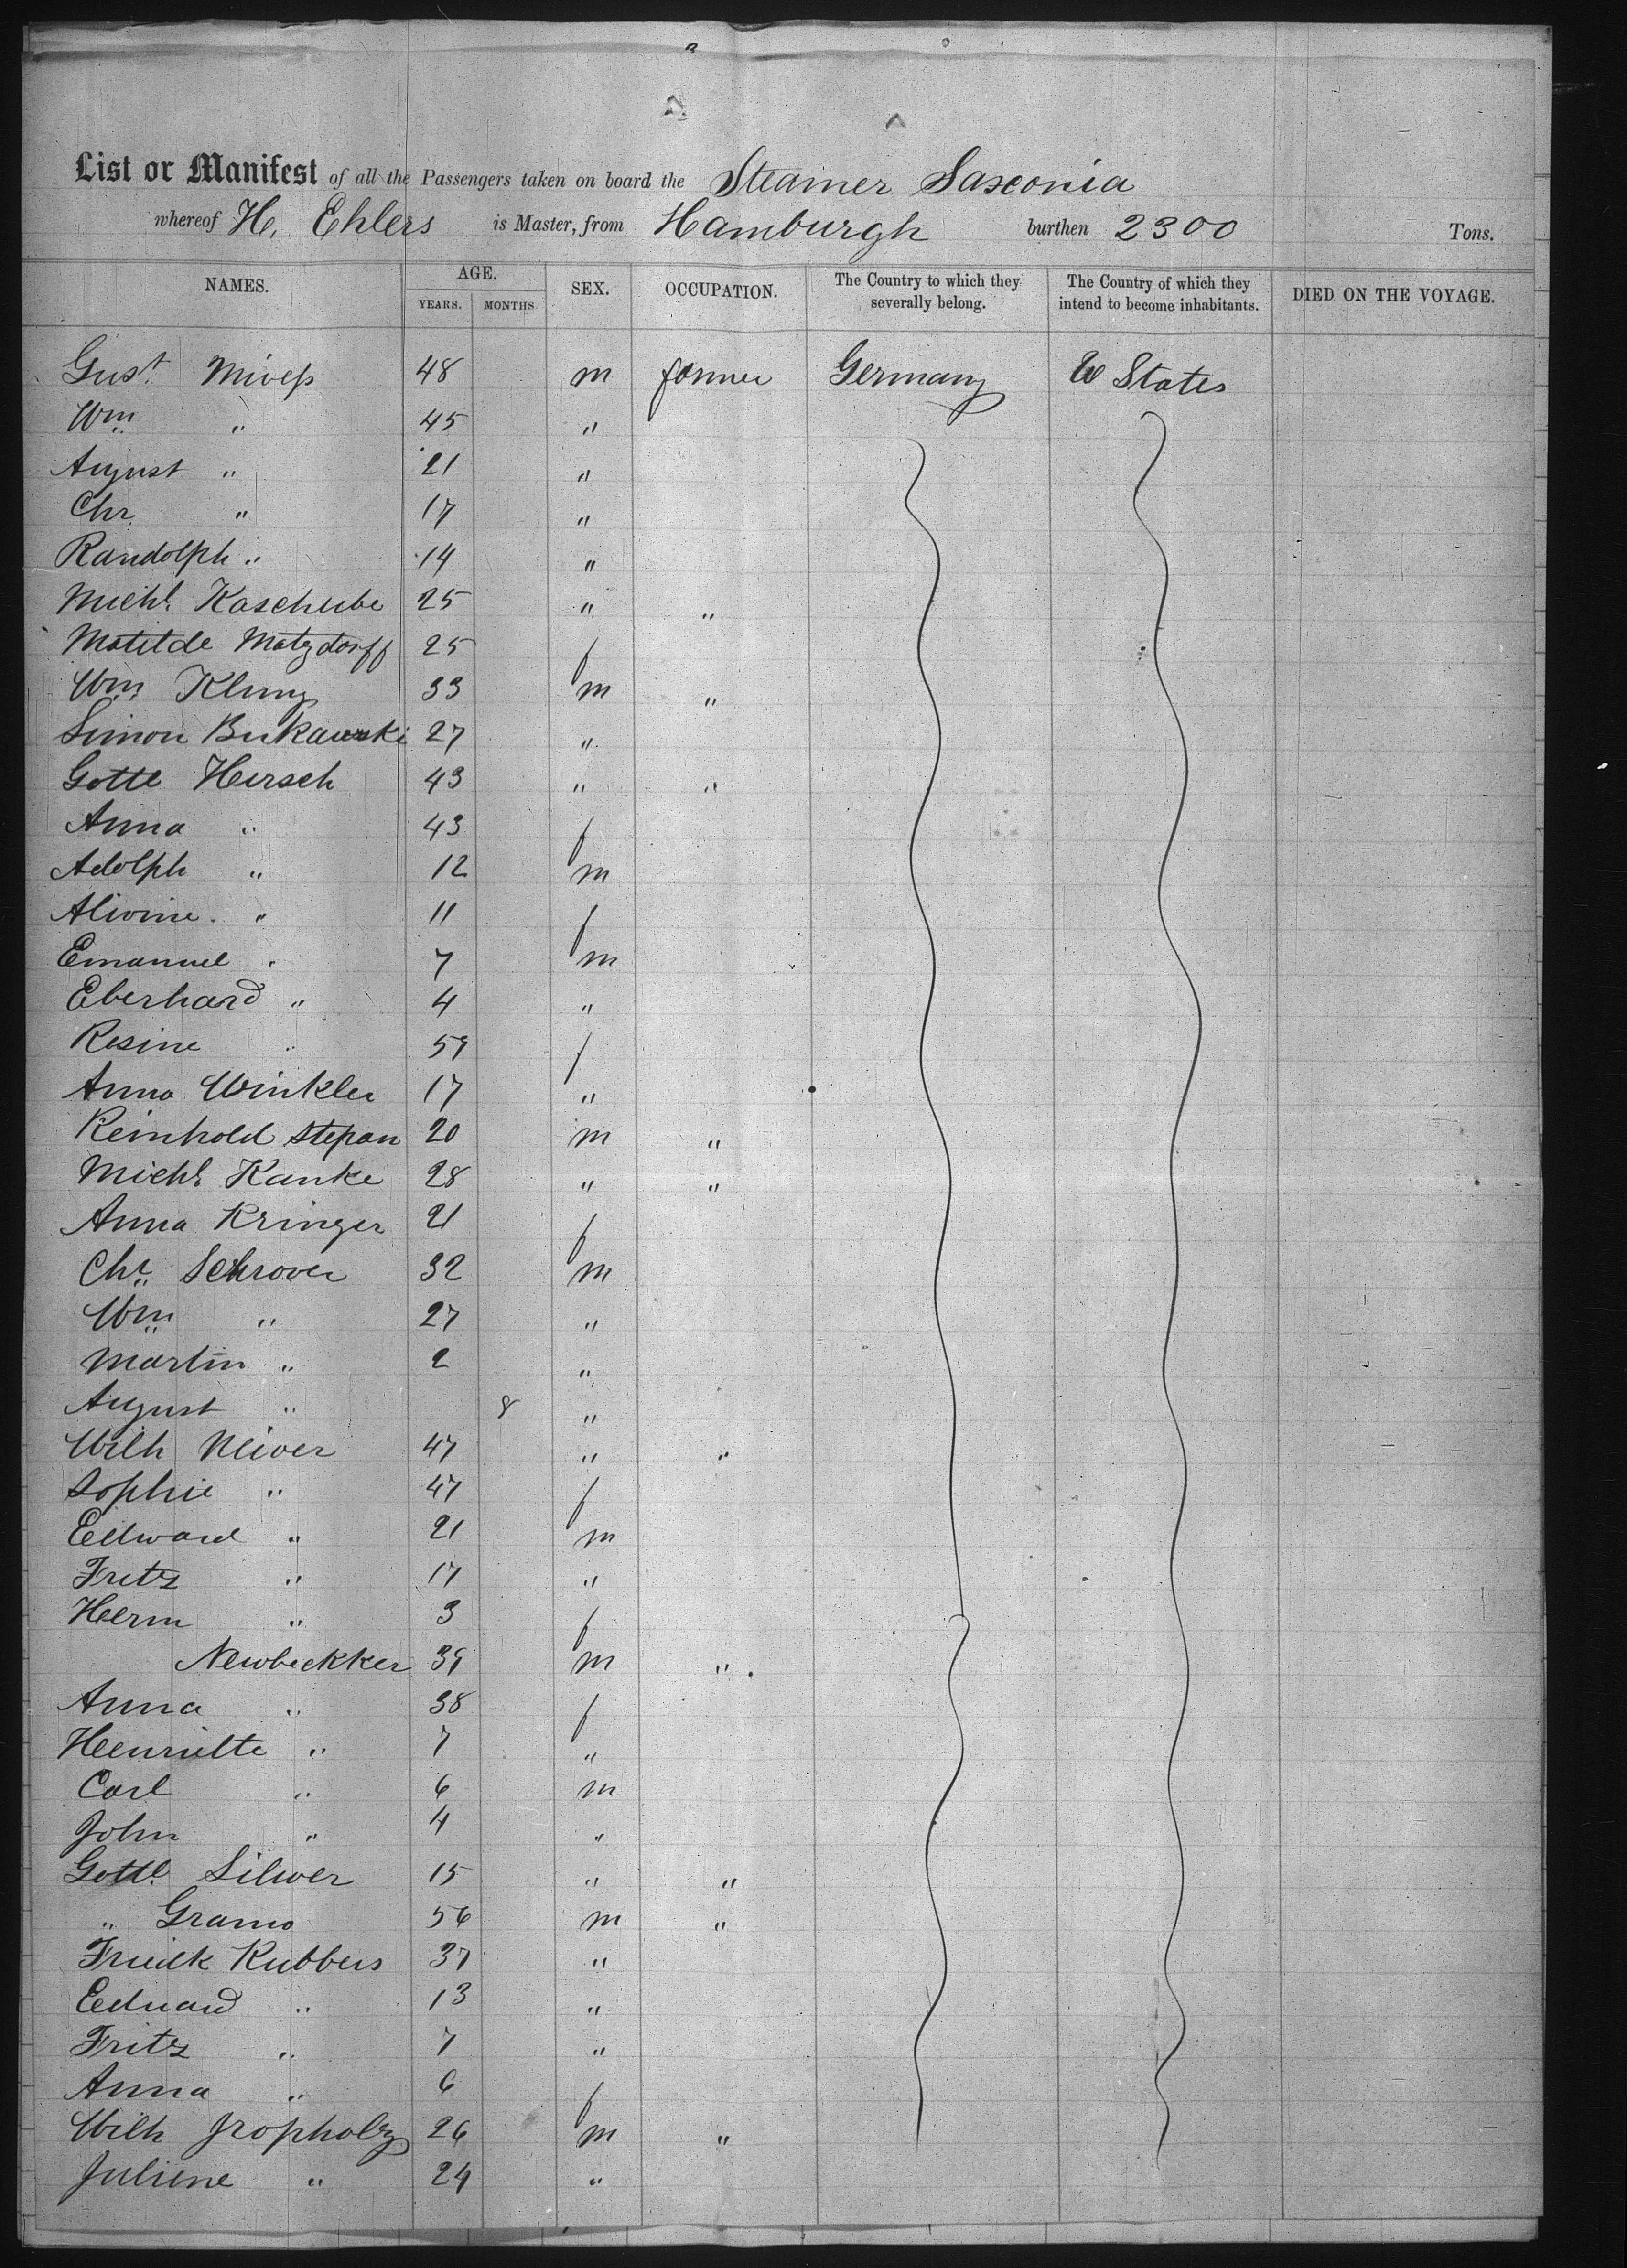 List or Manifest of all the Passengers taken on board the Steamer Saxonia
whereof H. Ehlers is Master, from Hamburgh burthen 2300 Tons.
NAMES. AGE. YEARS. MONTHS SEX. OCCUPATION. The Country to which they severally belong. The Country of which they intend to become inhabitants. DIED ON THE VOYAGE.
Gust. 48 m farmer Germany U States
Wm " 45 "
August " 21 "
Chr " 17 "
Randolph " 14 "
Michl. Kaschube 25 " "
Matilde Matzdorff 25 f
Wm Klung 33 m "
Simon Bukawski 27 "
Gottl Hersch 43 " "
Anna " 43 f
Adolph " 12 m
Alwine " 11 f
Emanuel " 7 m
Eberhard " 4 "
Rosine " 59 f
Anna Winkler 17 "
Reinhold Stepan 20 m "
Michl. Kanke 28 " "
Anna Kringer 21 f
Chr. Schrover 32 m
Wm " 27 "
Martin " 2 "
August " 8 "
Wilh Meiver 47 " "
Sophie " 47 f
Edward " 21 m
Fritz " 17 "
Herm " 3 f
Newbeckker 39 m "
Anna " 38 f
Henriette " 7 "
Carl " 6 m
John " 4 "
Gottl. Silwer 15 " "
" Gramo 56 m "
Friedk Rubbers 37 "
Eduard " 13 "
Fritz " 7 "
Anna " 6 f
Wilh Propholz 26 m "
Juliene " 24 "